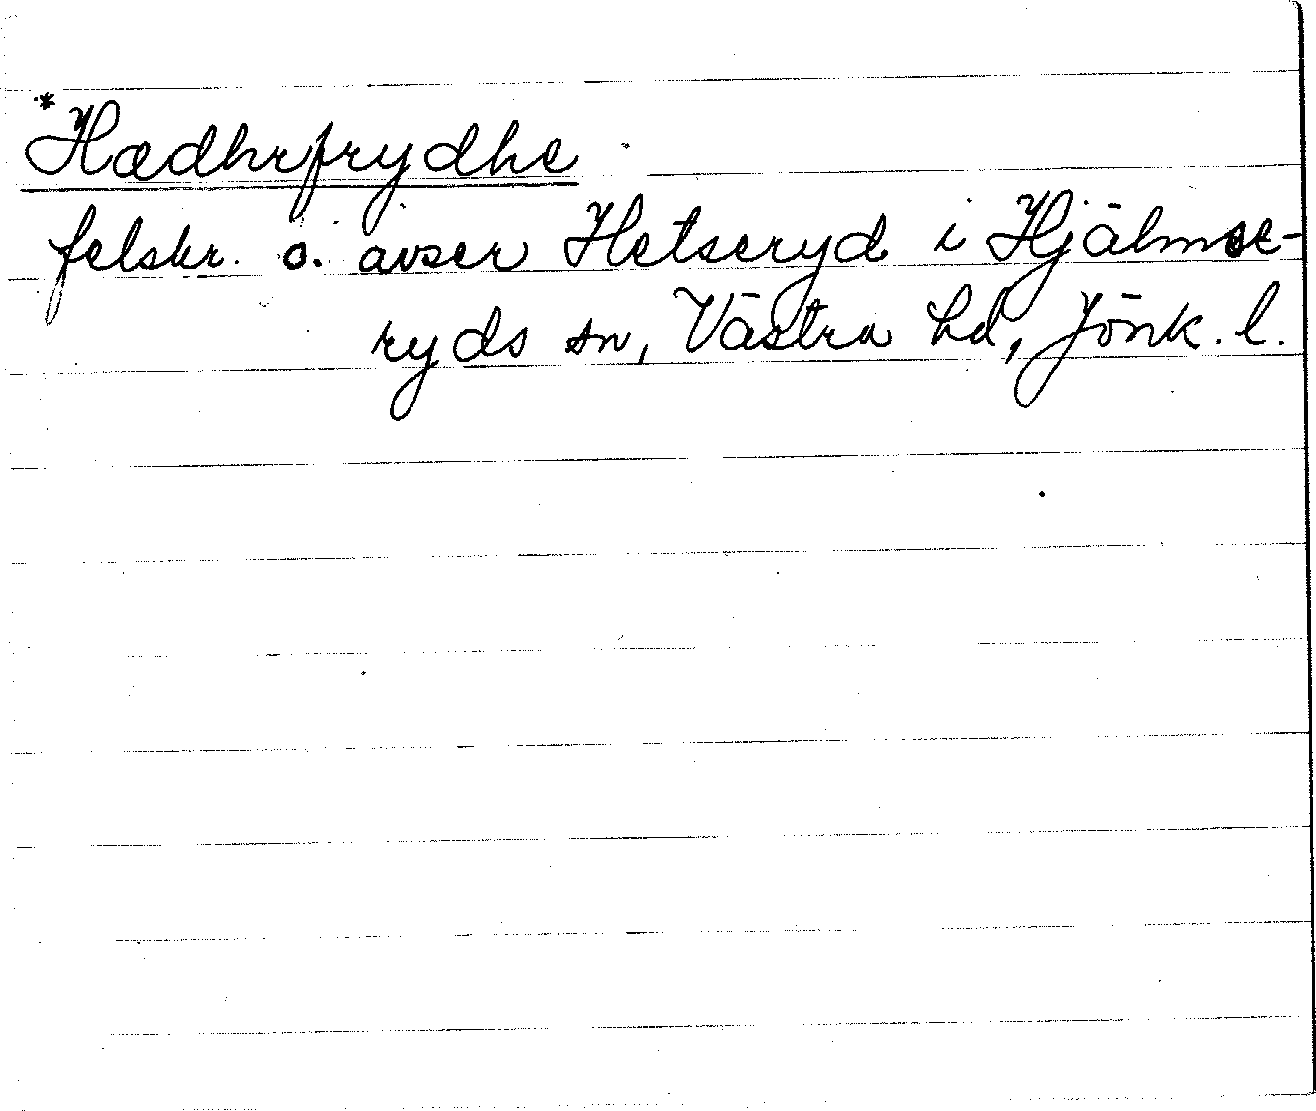 *Hædhrfrydhe
felskr. o. avser Hetseryd i Hjälmse-
ryds sn, Västra hd, Jönk. l.